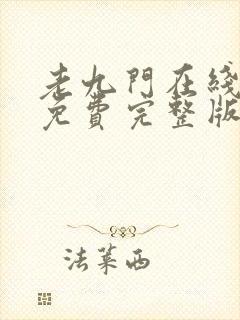 老九門在綫
免費完整版
法萊西